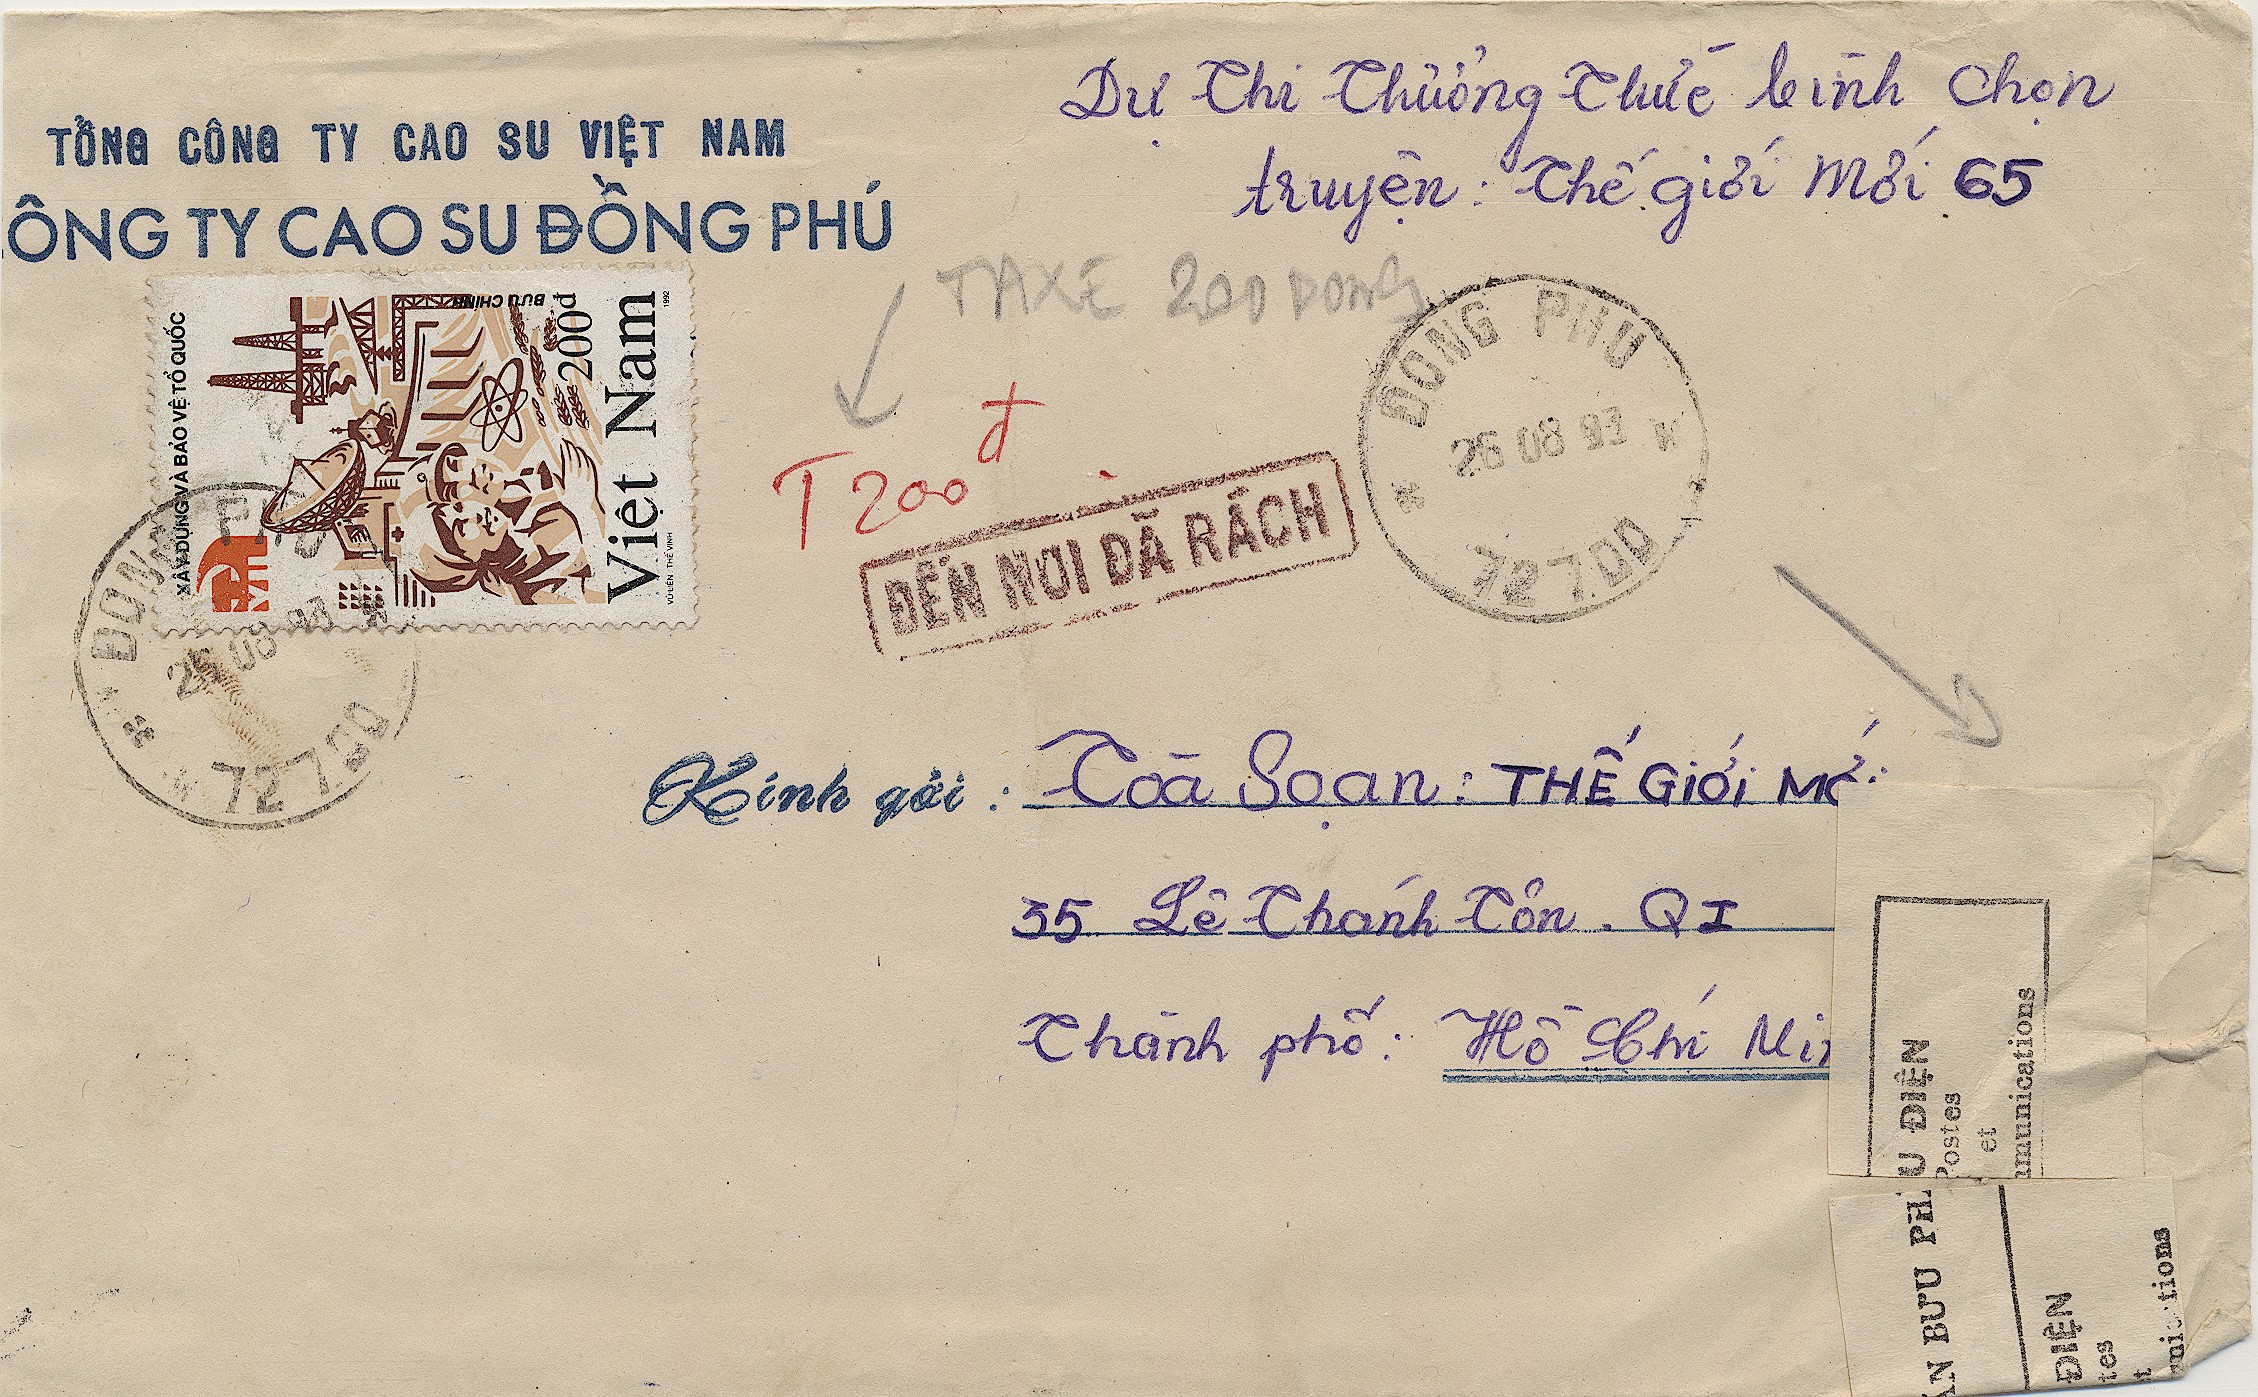 Dự Thi Thưởng Thức bình chọn
truyện: Thế giới Mới 65
TỔNG CÔNG TY CAO SU VIỆT NAM
ÔNG TY CAO SU ĐỒNG PHÚ
TAXE 200 DONG
XÂY DỰNG VÀ BẢO VỆ TỔ QUỐC
BƯU CHÍNH
200đ
Việt Nam
1992
VŨ HIỀN THẾ VINH
T 200đ
ĐẾN NƠI ĐÃ RÁCH
ĐONG PHU
26 08 93
727.00
ĐONG PHU
26 08 93
727.00
Kính gởi: Toà Soạn: THẾ GIỚI MỚI
35 Lê Thánh Tôn. QI
Thành phố: Hồ Chí Min
U ĐIỆN
Postes
et
mmunications
ÁN BƯU PH
ĐIỆN
tes
t
tions